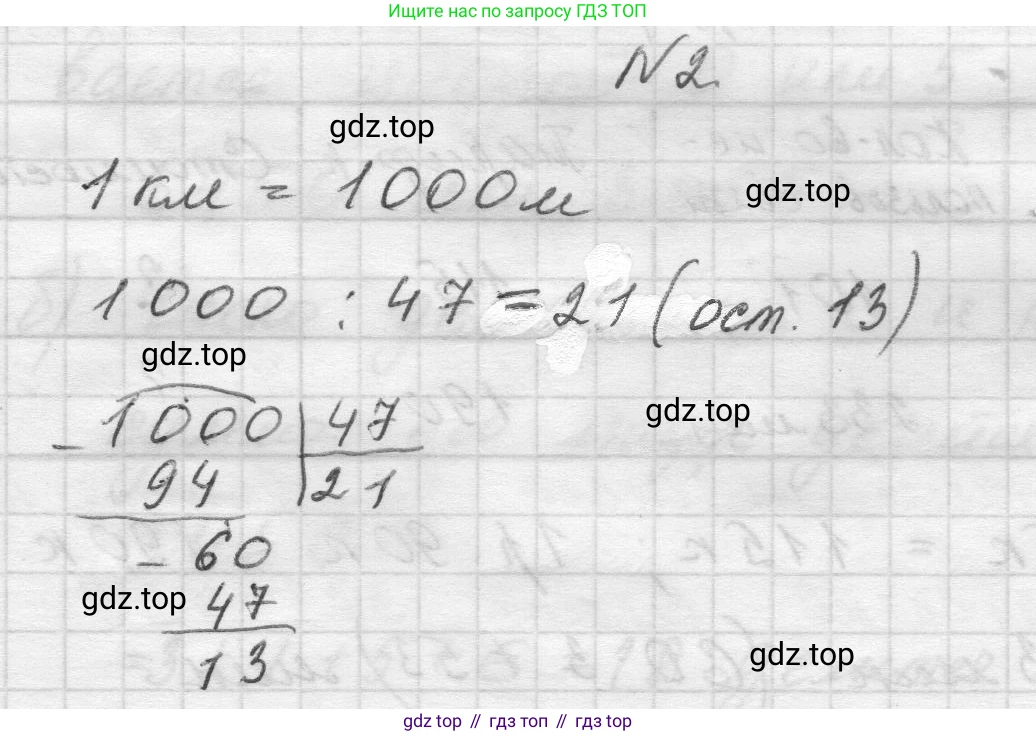 Ищите нас по запросу ГДЗ ТОП
N 2.
gdz.top
1 км = 1000 м
gdz.top
1000 : 47 = 21 (ост. 13)
gdz.top
gdz.top
- 1000 | 47
94 | 21
- 60
gdz.top
47
13
gdz.top
gdz top // гдз топ // gdz top